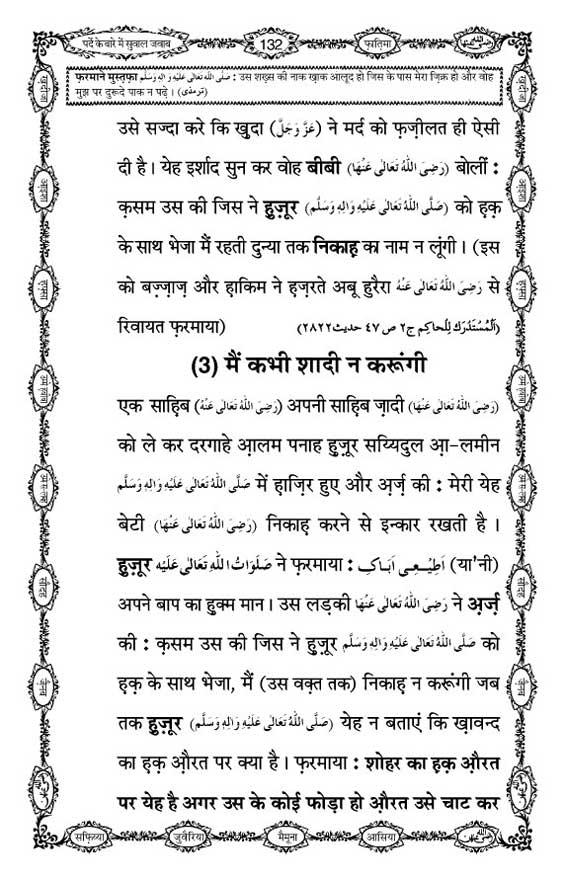 पर्दे के बारे में सुवाल जवाब
132
फ़ातिमा
फ़रमाने मुस्तफ़ा صَلَّى اللهُ تَعَالٰى عَلَيْهِ وَاٰلِهٖ وَسَلَّم : उस शख़्स की नाक ख़ाक आलूद हो जिस के पास मेरा ज़िक्र हो और वोह
मुझ पर दुरूदे पाक न पढ़े । (ترمذی)
उसे सज्दा करे कि खुदा (عَزَّوَجَلَّ) ने मर्द को फ़ज़ीलत ही ऐसी
दी है । येह इर्शाद सुन कर वोह बीबी (رَضِىَ اللهُ تَعَالٰى عَنْهَا) बोलीं :
क़सम उस की जिस ने हुज़ूर (صَلَّى اللهُ تَعَالٰى عَلَيْهِ وَاٰلِهٖ وَسَلَّم) को हक़
के साथ भेजा मैं रहती दुन्या तक निकाह का नाम न लूंगी । (इस
को बज़्ज़ाज़ और हाकिम ने हज़रते अबू हुरैरा رَضِىَ اللهُ تَعَالٰى عَنْهُ से
रिवायत फ़रमाया) (اَلْمُسْتَدْرَك لِلْحاكِم ج٢ ص ٤٧ حديث ٢٨٢٢)
(3) मैं कभी शादी न करूंगी
एक साहिब (رَضِىَ اللهُ تَعَالٰى عَنْهُ) अपनी साहिब ज़ादी (رَضِىَ اللهُ تَعَالٰى عَنْهَا)
को ले कर दरगाहे आलम पनाह हुज़ूर सय्यिदुल आ-लमीन
صَلَّى اللهُ تَعَالٰى عَلَيْهِ وَاٰلِهٖ وَسَلَّم में हाज़िर हुए और अर्ज़ की : मेरी येह
बेटी (رَضِىَ اللهُ تَعَالٰى عَنْهَا) निकाह करने से इन्कार रखती है ।
हुज़ूर صَلَوَاتُ اللهِ تَعَالٰى عَلَيْه ने फ़रमाया : اَطِيْعِى اَبَاكِ (या'नी)
अपने बाप का हुक्म मान । उस लड़की رَضِىَ اللهُ تَعَالٰى عَنْهَا ने अर्ज़
की : क़सम उस की जिस ने हुज़ूर صَلَّى اللهُ تَعَالٰى عَلَيْهِ وَاٰلِهٖ وَسَلَّم को
हक़ के साथ भेजा, मैं (उस वक़्त तक) निकाह न करूंगी जब
तक हुज़ूर (صَلَّى اللهُ تَعَالٰى عَلَيْهِ وَاٰلِهٖ وَسَلَّم) येह न बताएं कि ख़ावन्द
का हक़ औरत पर क्या है । फ़रमाया : शोहर का हक़ औरत
पर येह है अगर उस के कोई फोड़ा हो औरत उसे चाट कर
सफ़िय्या
जुवैरिया
मैमूना
आसिया